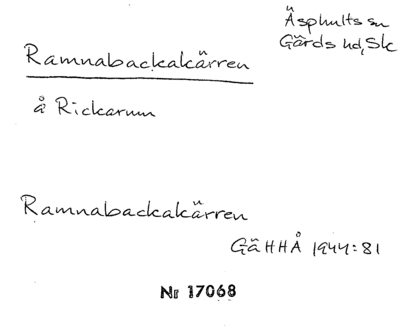 Ramnabackakärren
Äsphults sn
Gärds hd, Sk
å Rickarum
Ramnabackakärren
GäHHÅ 1944:81
Nr 17068